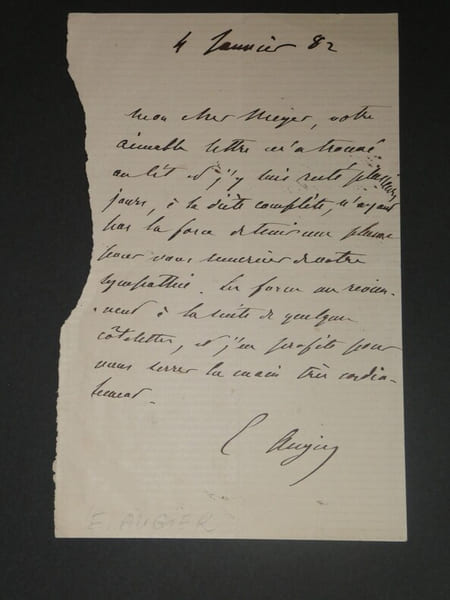 4 Janvier 82
Mon cher Meyer, votre
aimable lettre m'a trouvé
au lit et j'y suis resté plusieurs
jours, à la diète complète, n'ayant
pas la force de tenir une plume
pour vous remercier de votre
sympathie. La force me revien-
-nent à la suite de quelques
côtelettes, et j'en profite pour
vous serrer la main très cordia-
lement.
E Augier
E. AUGIER